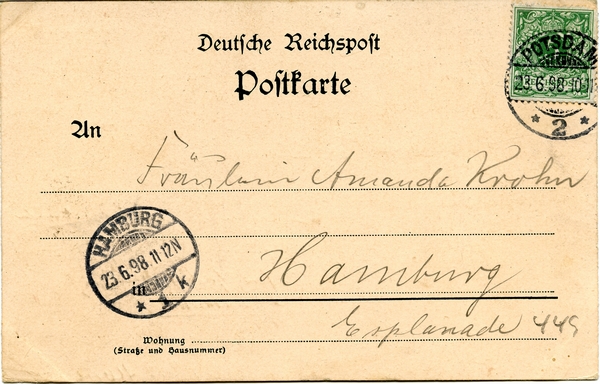 Deutsche Reichspost
Postkarte
POTSDAM
23.6.98.10-11
* 2 *
An
Fräulein Amanda Krohn
HAMBURG
23.6.98.11-12N
* 1 k
in Hamburg
Esplanade
Wohnung
(Straße und Hausnummer)